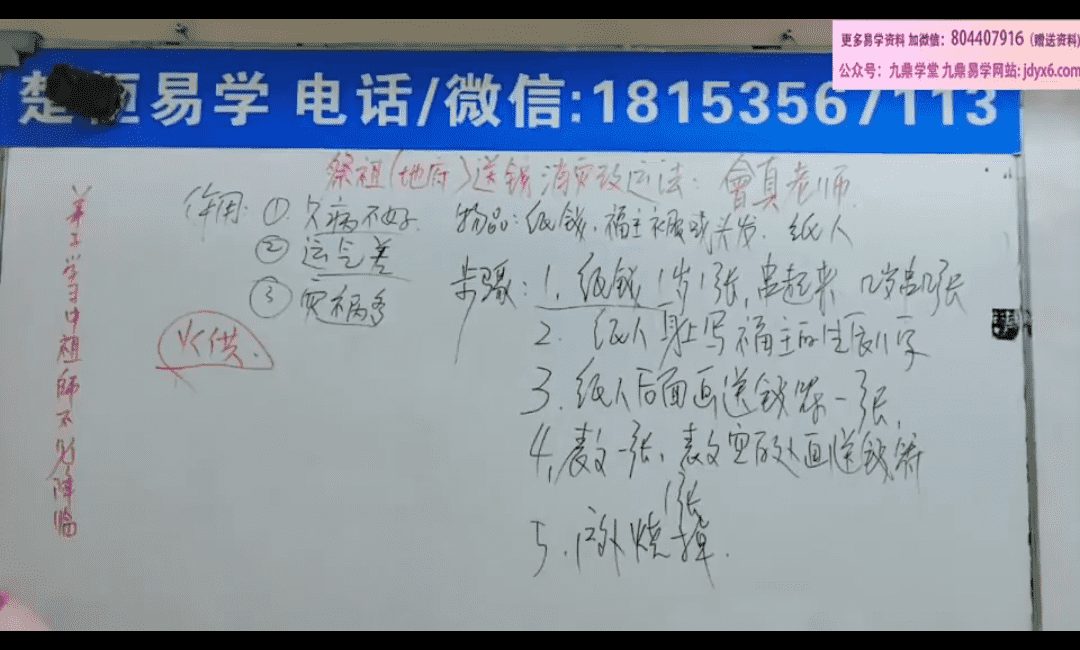 更多易学资料 加微信：804407916（赠送资料)
公众号：九鼎学堂 九鼎易学网站: jdyx6.com
楚恒易学 电话/微信:18153567113
祭祖(地府)送钱消灾改运法：會真老师.
作用: ① 久病不好.
② 运气差
③ 灾祸多
火供.
物品：纸钱.福主衣服或头发. 纸人
步骤：1. 纸钱1岁1张,串起来 几岁串几张
2. 纸人身上写福主的生辰八字
3. 纸人后面画送钱符一张,
4, 表文一张、表文空白处画送钱符
1张
5. 户外烧掉.
弟子学习中祖師不必降臨